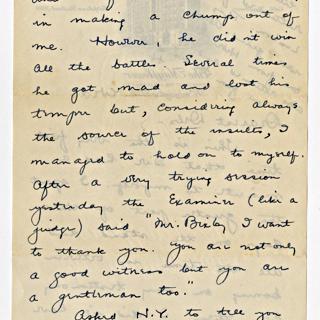 in making a chump out of
me. However, he didn't win
all the battles. Several times
he got mad and lost his
temper but, considering always
the source of the insults, I
managed to hold on to myself.
After a very trying session
yesterday the Examiner (like a
judge) said "Mr. Bixby I want
to thank you. You are not only
a good witness but you are
a gentleman too."
Asked N.Y. to tell you